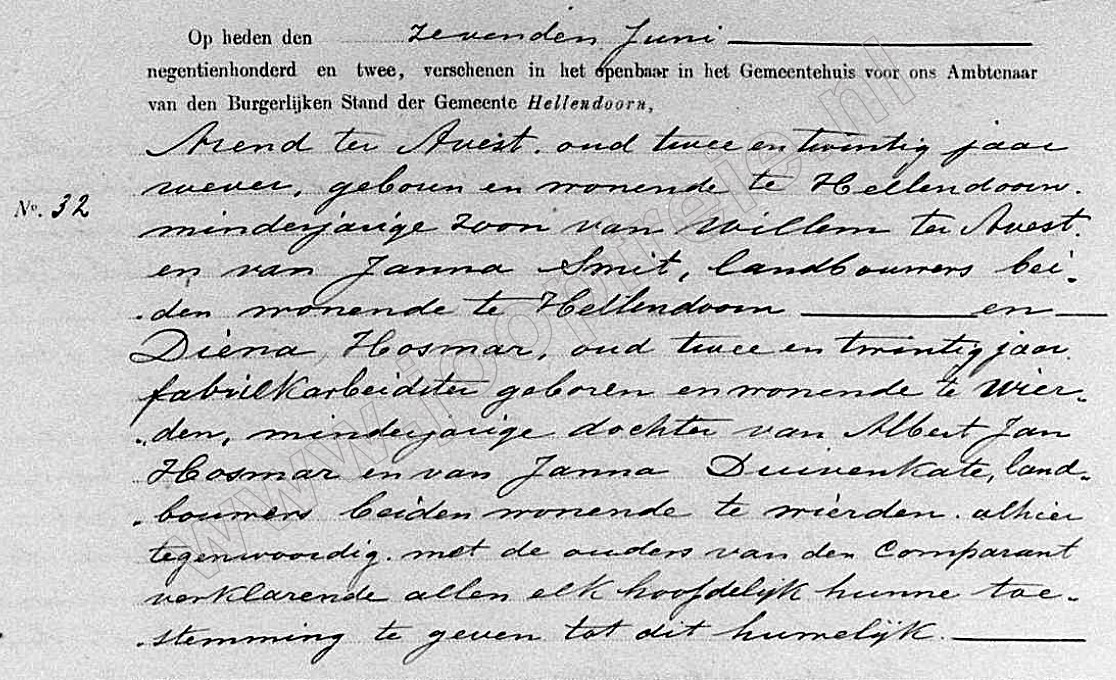 Op heden den zevenden Juni
negentienhonderd en twee, verschenen in het openbaar in het Gemeentehuis voor ons Ambtenaar
van den Burgerlijken Stand der Gemeente Hellendoorn,
Arend ter Avest. oud twee en twintig jaar
wever, geboren en wonende te Hellendoorn.
No. 32
minderjarige zoon van Willem ter Avest.
en van Janna Smit, landbouwers bei-
den wonende te Hellendoorn en
Diena Hosmar, oud twee en twintig jaar.
fabriekarbeidster geboren en wonende te Wier-
den, minderjarige dochter van Albert Jan
Hosmar en van Janna Duivenkate, land-
bouwers beiden wonende te Wierden. alhier
tegenwoordig. met de ouders van den Comparant
verklarende allen elk hoofdelijk hunne toe-
stemming te geven tot dit huwelijk.